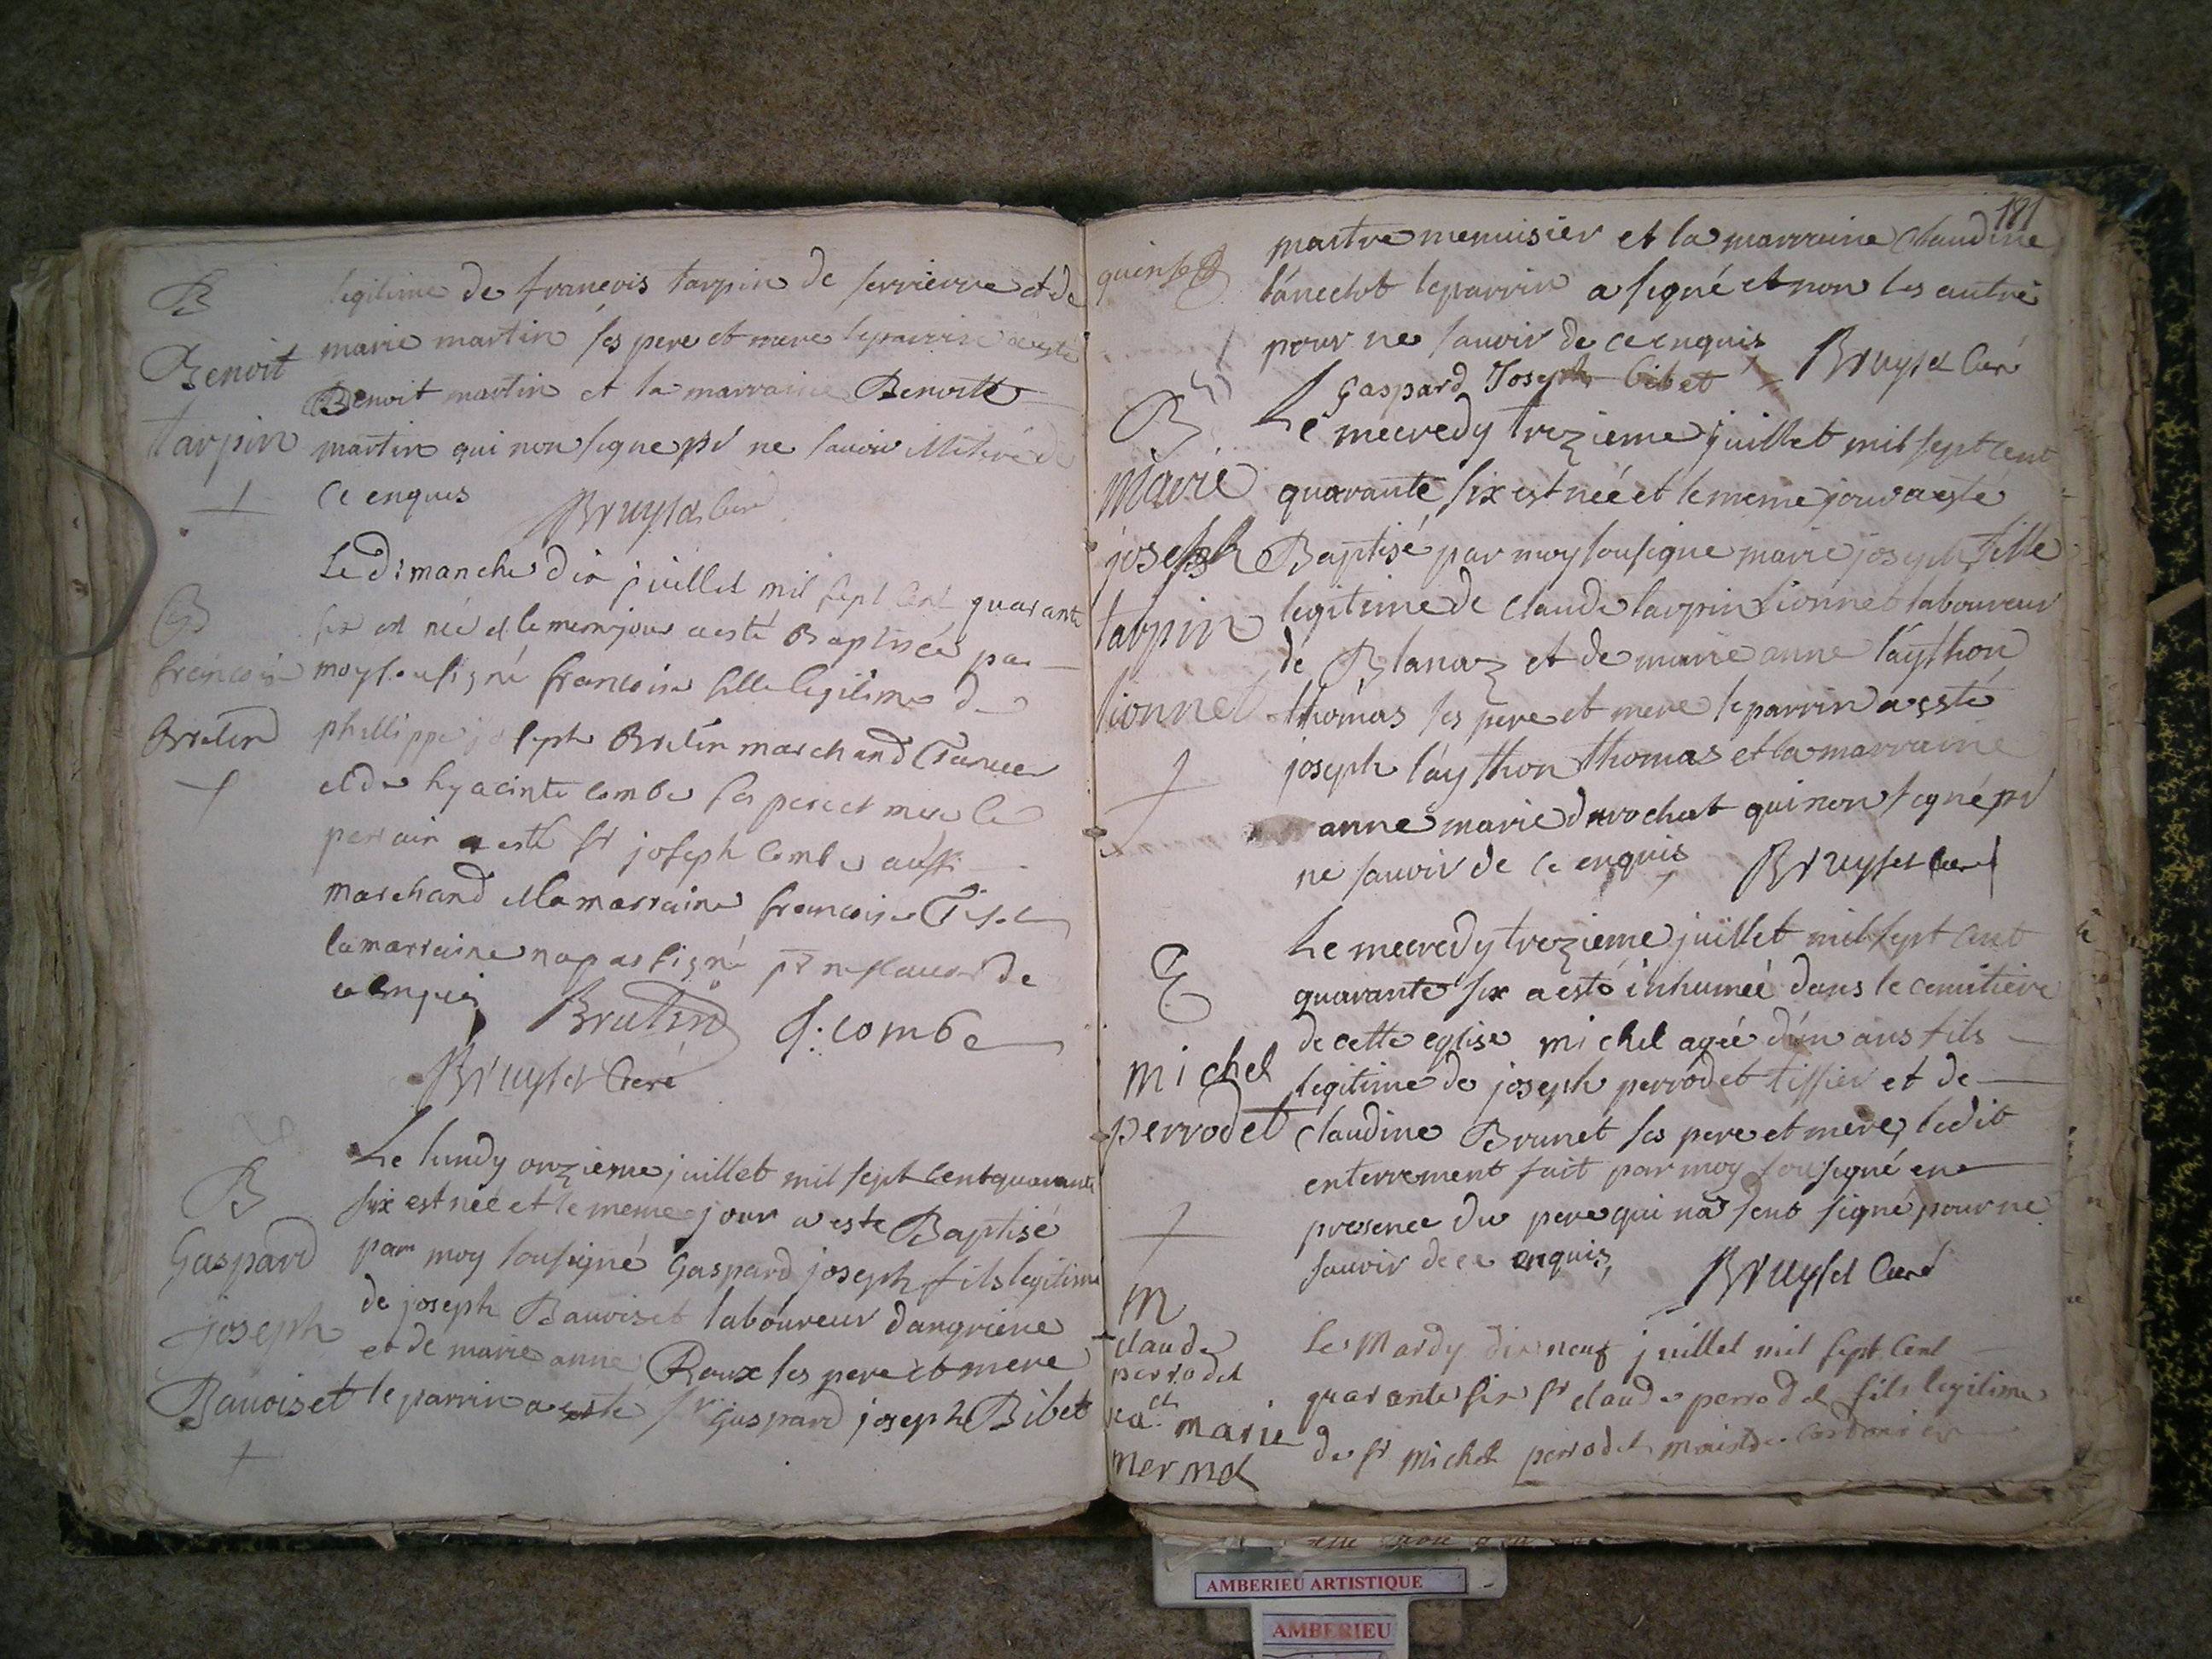 B
Benoit
tarpin
legitime de françois tarpin de serrierre et de
marie martin ses pere et mere le parrin a esté
Benoit martin et la marraine Benoitte
martin qui non signe pr ne sauoir de
ce enquis Bruyset Curé
B
francoise
Brutin
Le dimanche dix juillet mil sept cent quarante
six est née et le meme jour a esté Baptisée par
moy sousigné francoise fille legitime de
phillippe joseph Brutin marchand
et de hyacinte combe ses pere et mere le
parrain a esté sr joseph combe aussi
marchand et la marraine francoise
la marraine na pas signé pr ne scauoir de
ce enquis Brutin J: combe
Bruyset Curé
B
Gaspard
joseph
Bauoiset
Le lundy onzieme juillet mil sept cent quarante
six est née et le meme jour a esté Baptisé
par moy sousigné Gaspard joseph fils legitime
de joseph Bauoiset laboureur dangriere
et de marie anne Roux ses pere et mere
le parrin a esté sr Gaspard joseph Bibet
181
maitre menuisier et la marraine Claudine
le parrin a signé et non les autre
pour ne sauoir de ce enquis Bruyset Curé
Gaspard Joseph Bibet
B
marie
joseph
tarpin
lionnet
Le mecredy trezieme juillet mil sept cent
quarante six est née et le meme jour a esté
Baptisé par moy sousigne marie joseph fille
legitime de claude tarpin lionnet laboureur
de Blanaz et de marie anne laython
thomas ses pere et mere le parrin a esté
joseph laython thomas et la marraine
anne marie durochat qui non signé pr
ne sauoir de ce enquis Bruyset Curé
E
michel
perrodet
Le mecredy trezieme juillet mil sept cent
quarante six a esté inhumée dans le cemitiere
de cette eglise michel agée dun ans fils
legitime de joseph perrodet tissier et de
claudine Brunet ses pere et mere, ledit
enterrement fait par moy sousigné en
presence du pere qui na seut signé pour ne
sauoir de ce enquis, Bruyset Curé
m
claude
perrodet
marie
mermet
Le Mardy dix neuf juillet mil sept cent
quarante six sr claude perrodet fils legitime
de sr michel perrodet maistre cordonier
AMBERIEU ARTISTIQUE
AMBERIEU